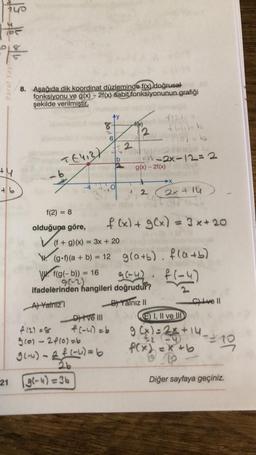 8. Aşağıda dik koordinat düzleminde f(x) doğrusal
fonksiyonu ve g(x) - 2f(x) sabit fonksiyonunun grafiği
şekilde verilmiştir.
y
8
2
6
2
T(-4,2)
-2x-12=2
g(x) - 2f(x)
-6
-4
O
x
2
2x+14
f(2) = 8
olduğuna göre,
f(x)+g(x) = 3x+20
(f + g)(x) = 3x + 20
(g·f)(a + b) = 12
g(a+b) . f(a+b)
f(g(- b)) = 16
g(-4) . f(-4)
2
ifadelerinden hangileri doğrudur?
A) Yalnız I
B) Yalnız II
C) I ve II
D) I ve III
E) I, II ve III
f(2)=8
f(-4)=b
g(x)=2x+14
g(0)-2f(0)=b
f(x)=x+b
10
g(-4)-2f(-4)=b
2b
g(-4)=3b
21
Diğer sayfaya geçiniz.